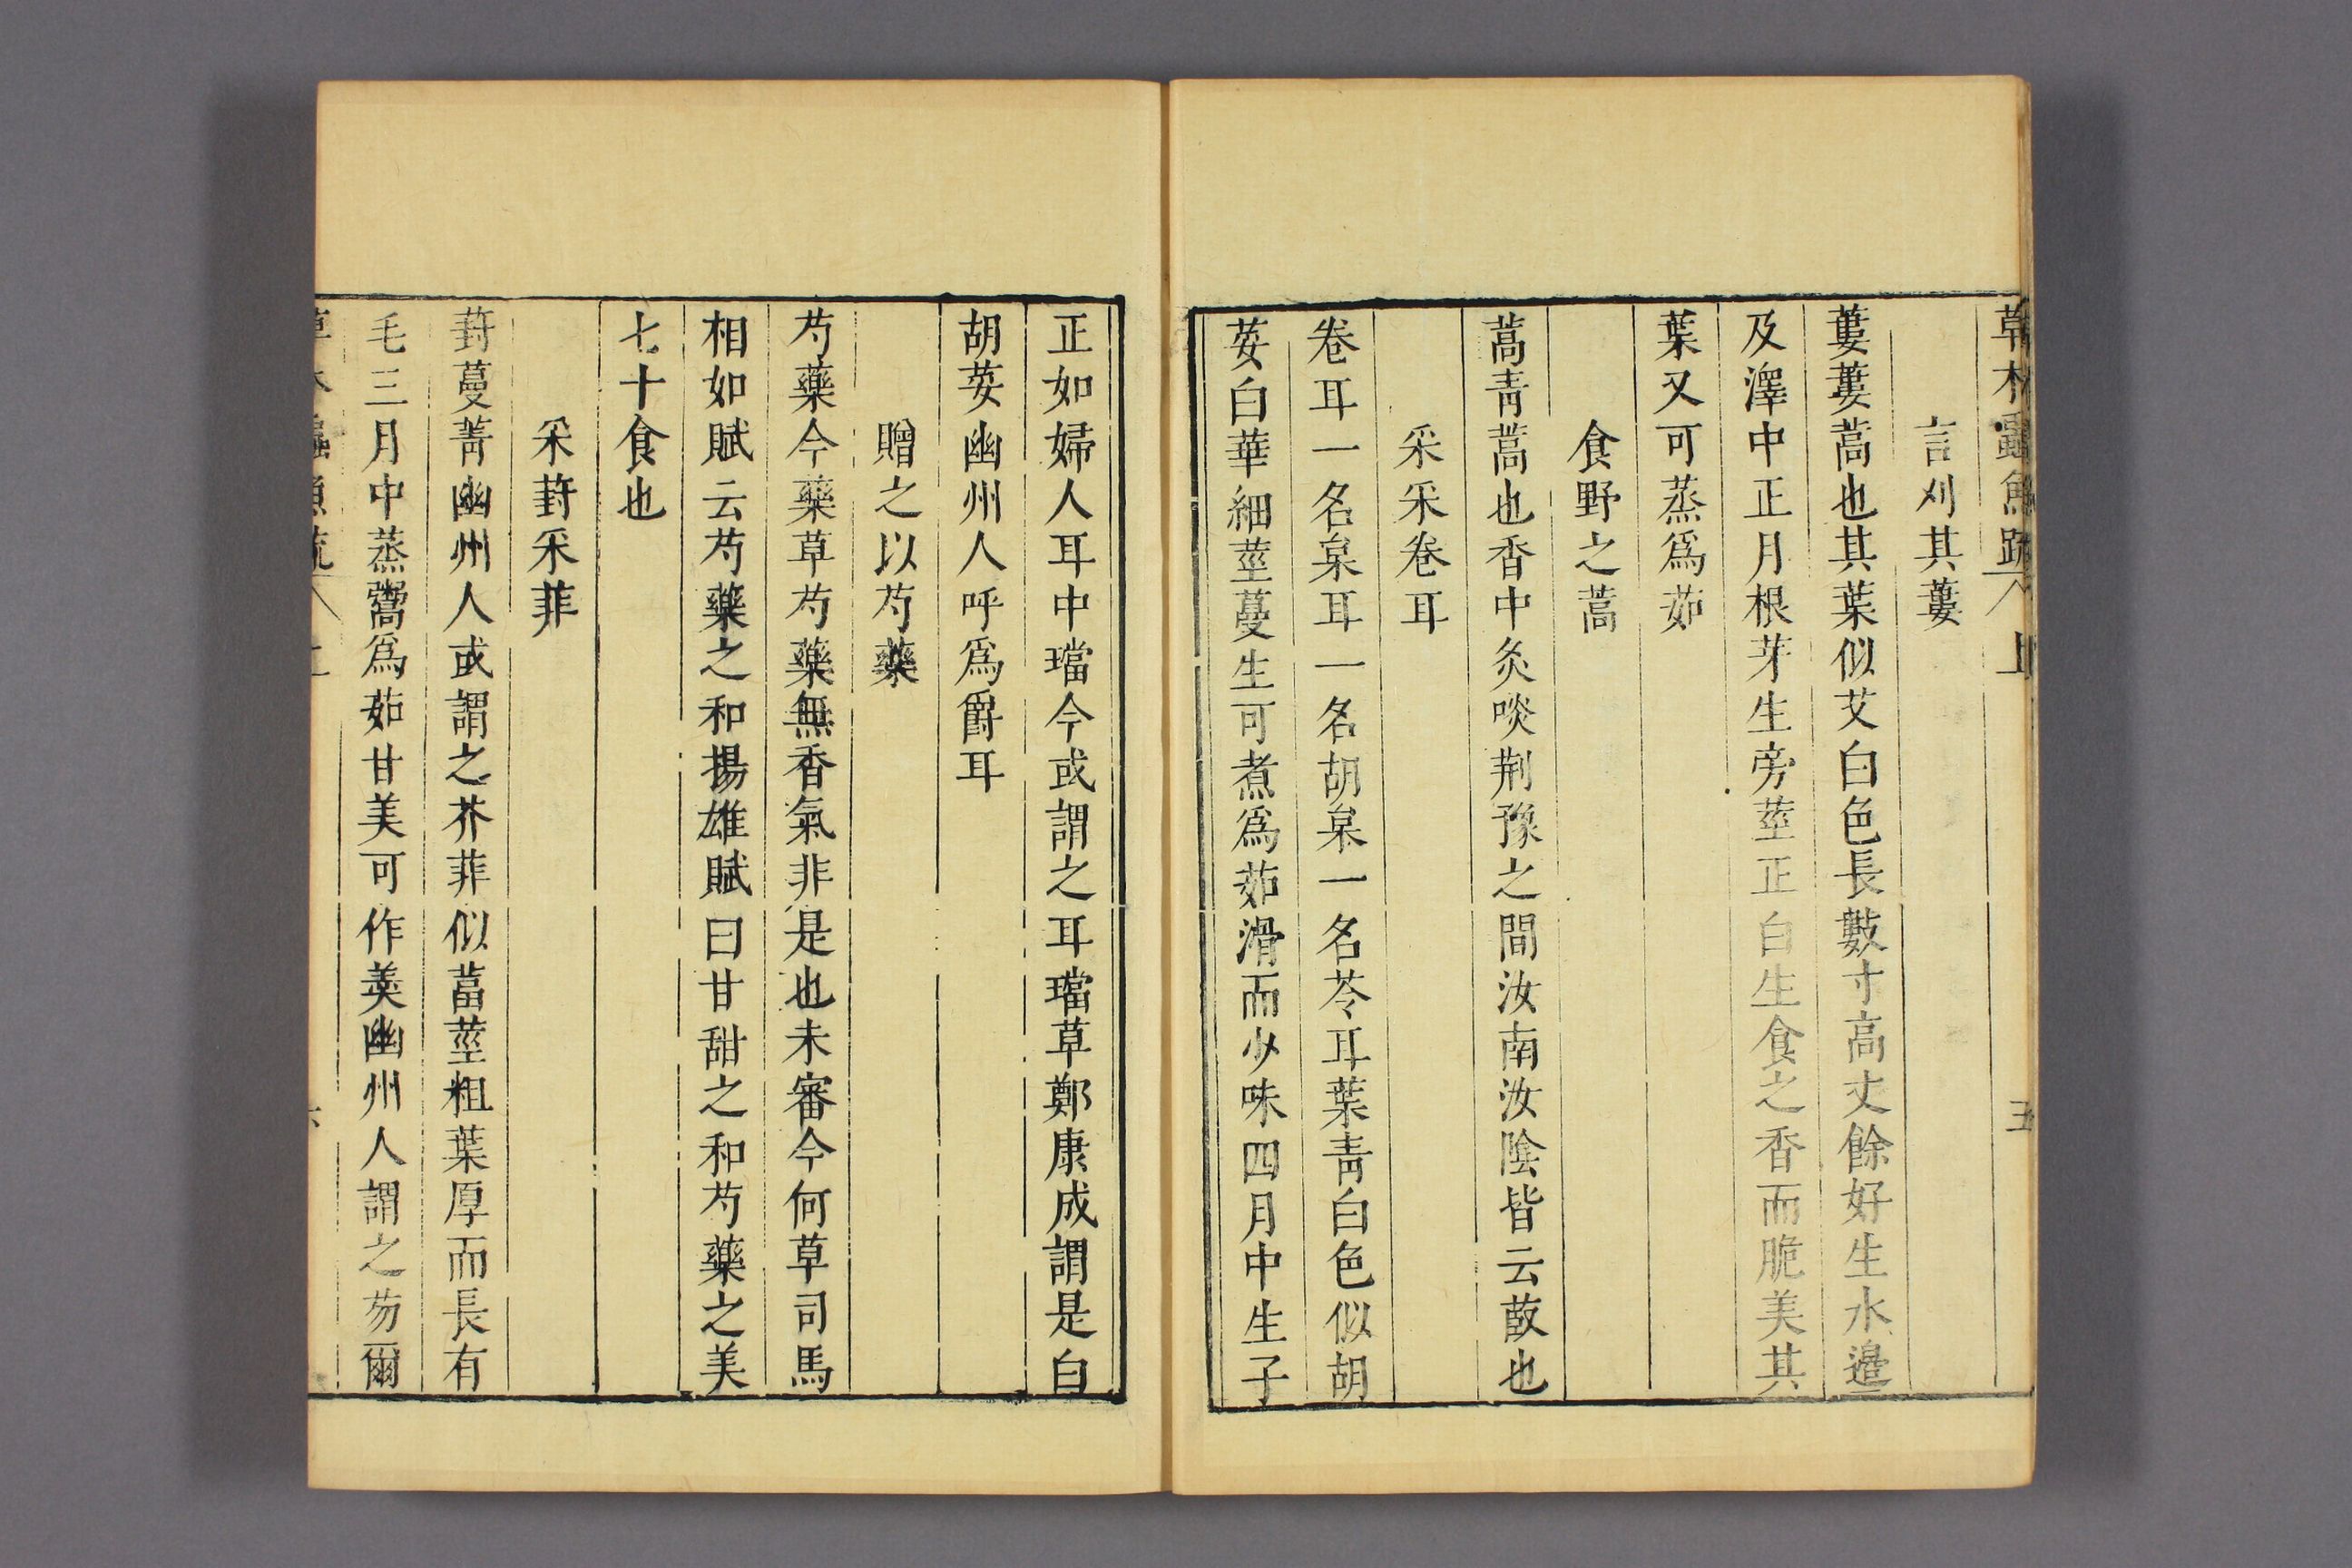 草木蟲魚疏 上 五
言刈其蔞
蔞蔞蒿也其葉似艾白色長數寸高丈餘好生水邉
及澤中正月根芽生旁莖正白生食之香而脆美其
葉又可蒸爲茹
食野之蒿
蒿青蒿也香中炙啖荆豫之間汝南汝陰皆云菣也
采采卷耳
卷耳一名枲耳一名胡枲一名苓耳葉青白色似胡
荽白華細莖蔓生可煮爲茹滑而少味四月中生子
正如婦人耳中璫今或謂之耳璫草鄭康成謂是白
胡荽幽州人呼爲爵耳
贈之以芍藥
芍藥今藥草芍藥無香氣非是也未審今何草司馬
相如賦云芍藥之和揚雄賦曰甘甜之和芍藥之美
七十食也
采葑采菲
葑蔓菁幽州人或謂之芥菲似葍莖粗葉厚而長有
毛三月中蒸鬻爲茹甘美可作羹幽州人謂之芴爾
草木蟲魚疏 上 六